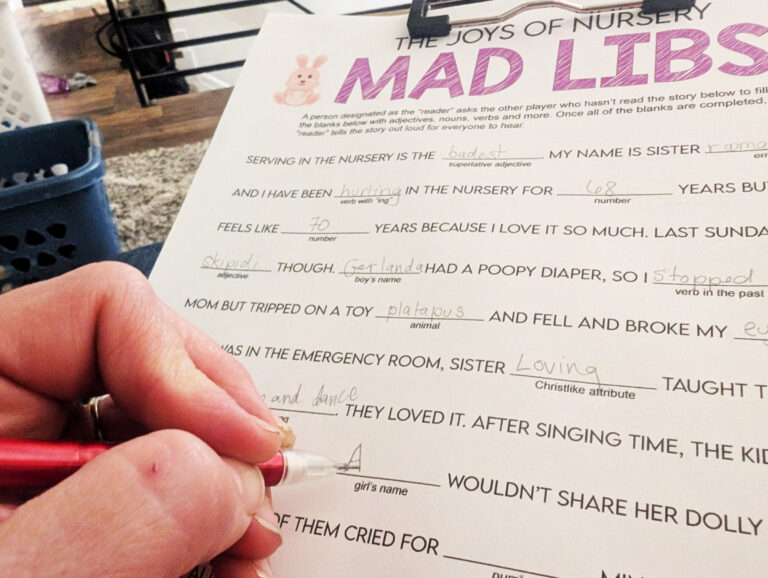 THE JOYS OF NURSERY
MAD LIBS
A person designated as the "reader" asks the other player who hasn't read the story below to fill
the blanks below with adjectives, nouns, verbs and more. Once all of the blanks are completed,
"reader" tells the story out loud for everyone to hear.
SERVING IN THE NURSERY IS THE badest. MY NAME IS SISTER
superlative adjective
AND I HAVE BEEN hurting IN THE NURSERY FOR 68 YEARS BU
verb with "ing" number
FEELS LIKE 70 YEARS BECAUSE I LOVE IT SO MUCH. LAST SUNDA
number
skipidi THOUGH. Gerlanda HAD A POOPY DIAPER, SO I stopped
adjective boy's name verb in the past
MOM BUT TRIPPED ON A TOY platapus AND FELL AND BROKE MY
animal
WAS IN THE EMERGENCY ROOM, SISTER Loving TAUGHT T
Christlike attribute
and dance. THEY LOVED IT. AFTER SINGING TIME, THE KID
A WOULDN'T SHARE HER DOLLY
girl's name
OF THEM CRIED FOR